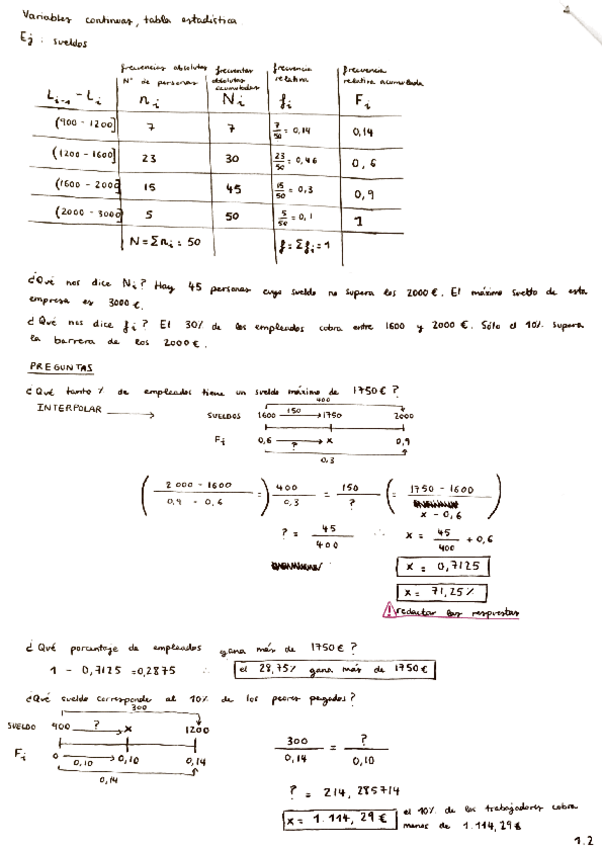 Variables continuas, tabla estadística.
2
Ej: sueldos
frecuencias absolutas frecuencias absolutas acumuladas frecuencia relativa frecuencia relativa acumulada
Nº de personas
Li-1 - Li ni Ni fi Fi
(900 - 1200] 7 7 7/50 = 0,14 0,14
(1200 - 1600] 23 30 23/50 = 0,46 0,6
(1600 - 2000] 15 45 15/50 = 0,3 0,9
(2000 - 3000] 5 50 5/50 = 0,1 1
N = Σni = 50 f = Σfi = 1
¿Qué nos dice Ni? Hay 45 personas cuyo sueldo no supera los 2000€. El máximo sueldo de esta
empresa es 3000€.
¿Qué nos dice fi? El 30% de los empleados cobra entre 1600 y 2000€. Sólo el 10% supera
la barrera de los 2000€.
PREGUNTAS
¿Qué tanto % de empleados tiene un sueldo máximo de 1750€?
400
INTERPOLAR → SUELDOS 1600 150 → 1750 2000
Fi 0,6 ? → x 0,9
0,3
( 2000 - 1600 / 0,9 - 0,6 = ) 400 / 0,3 = 150 / ? ( = 1750 - 1600 / x - 0,6 )
? = 45 / 400 ∴ x = 45 / 400 + 0,6
x = 0,7125
x = 71,25%
! redactar las respuestas
¿Qué porcentaje de empleados gana más de 1750€?
1 - 0,7125 = 0,2875 ∴ el 28,75% gana más de 1750€
¿Qué sueldo corresponde al 10% de los peores pagados?
300
SUELDO 900 ? → x 1200
Fi 0 0,10 → 0,10 0,14
0,14
300 / 0,14 = ? / 0,10
? = 214,285714
x = 1.114,29€ el 10% de los trabajadores cobra
menos de 1.114,29€
1.2